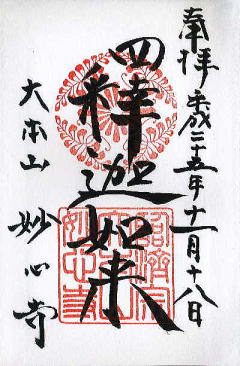 奉拝 平成二十五年十一月十八日
四釋迦如来
大本山 妙心寺